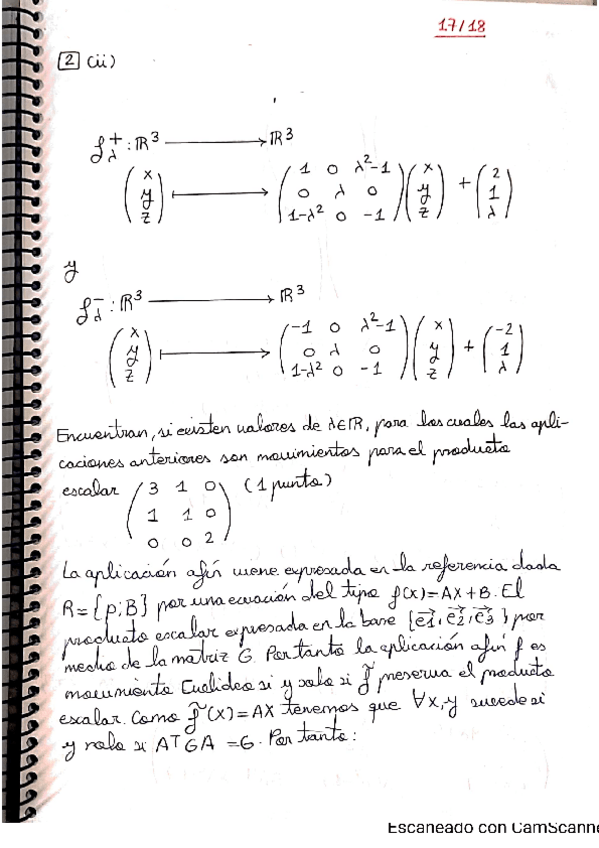 17/18
2 (ii)
f_λ^+ : ℝ³ → ℝ³
(x y z) ↦ (1 0 λ²-1 / 0 λ 0 / 1-λ² 0 -1) (x y z) + (2 1 λ)
y
f_λ^- : ℝ³ → ℝ³
(x y z) ↦ (-1 0 λ²-1 / 0 λ 0 / 1-λ² 0 -1) (x y z) + (-2 1 λ)
Encuentran, si existen valores de λ∈ℝ, para los cuales las apli-
caciones anteriores son movimientos para el producto
escalar (3 1 0 / 1 1 0 / 0 0 2) (1 punto)
La aplicación afín viene expresada en la referencia dada
R={p;B} por una ecuación del tipo f(x)=AX+B. El
producto escalar expresada en la base {e⃗1, e⃗2, e⃗3} por
medio de la matriz G. Por tanto la aplicación afín f es
movimiento Euclídeo si y solo si f̃ preserva el producto
escalar. Como f̃(x)=AX tenemos que ∀x,y sucede si
y solo si AᵀGA =G. Por tanto:
Escaneado con CamScanne